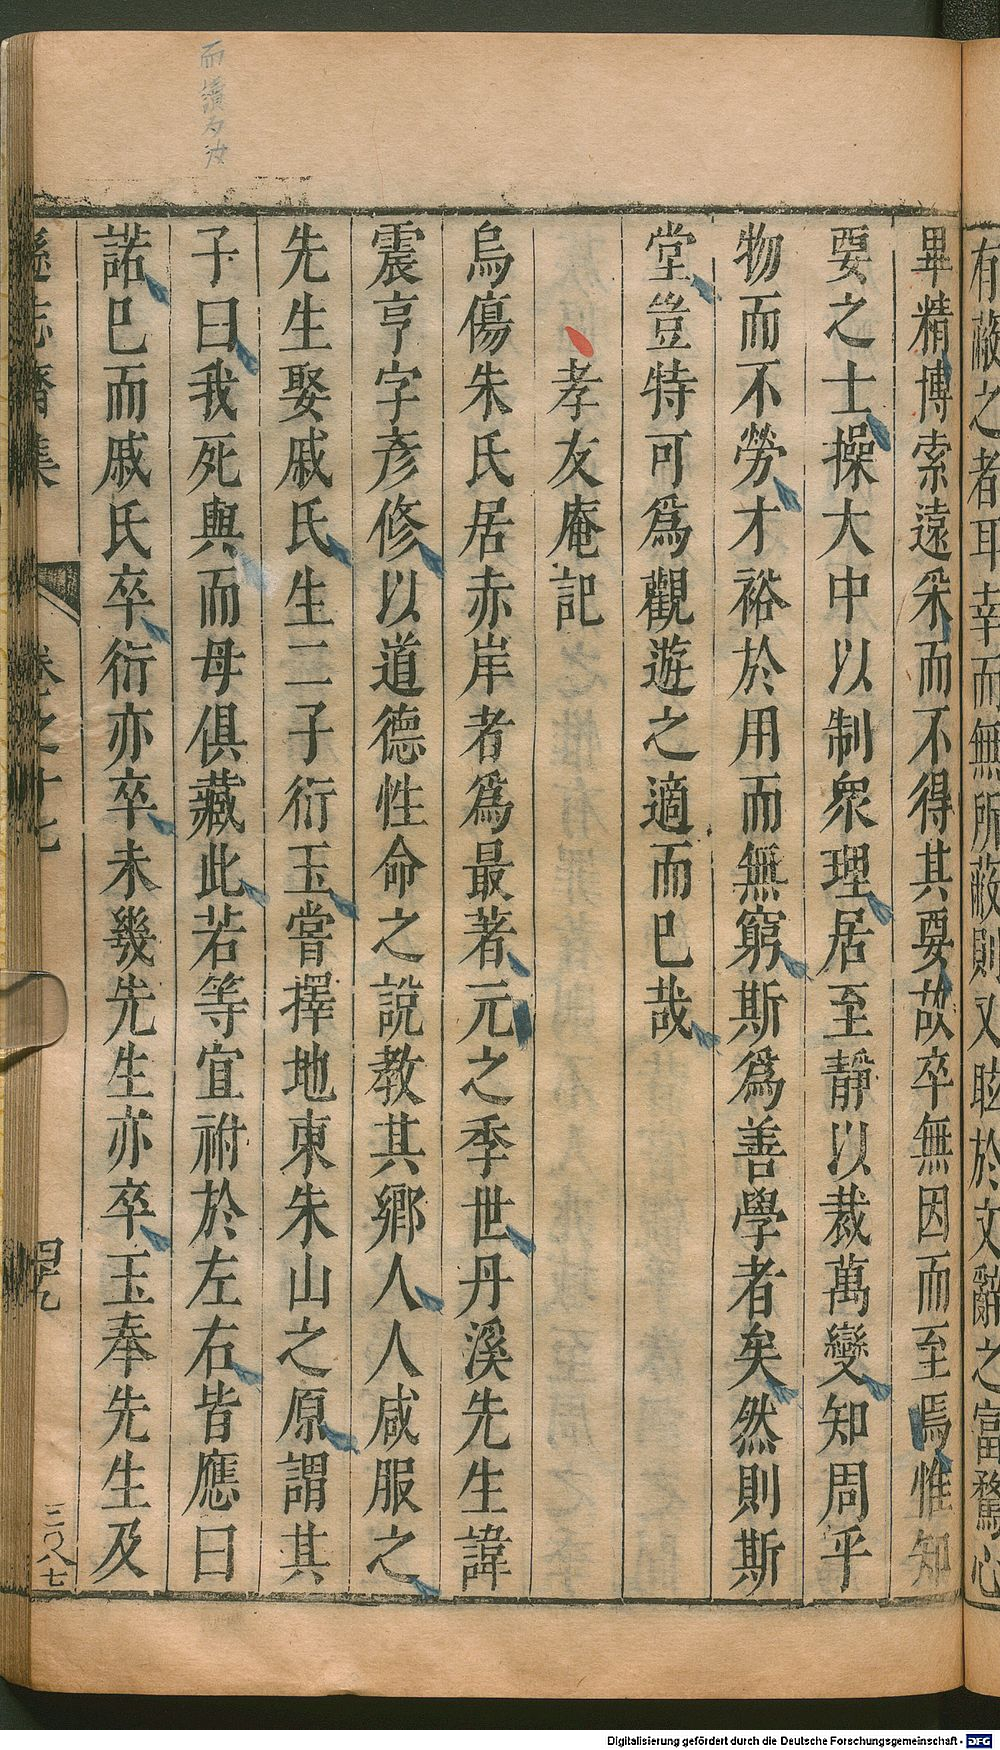 有蔽之者耳幸而無所蔽則又眩於文辭之富騖心
畢精博索遠采而不得其要故卒無因而至焉惟知
要之士操大中以制衆理居至靜以裁萬變知周乎
物而不勞才裕於用而無窮斯爲善學者矣然則斯
堂豈特可爲觀遊之適而巳哉
孝友庵記
烏傷朱氏居赤岸者爲最著元之季世丹溪先生諱
震亨字彥修以道德性命之說教其鄉人人咸服之
先生娶戚氏生二子衍玉嘗擇地東朱山之原謂其
子曰我死輿而母俱藏此若等宜祔於左右皆應曰
諾巳而戚氏卒衍亦卒未幾先生亦卒玉奉先生及
遜志齋集
卷之十七
四九
三〇八七
而讀为汝
Digitalisierung gefördert durch die Deutsche Forschungsgemeinschaft - DFG